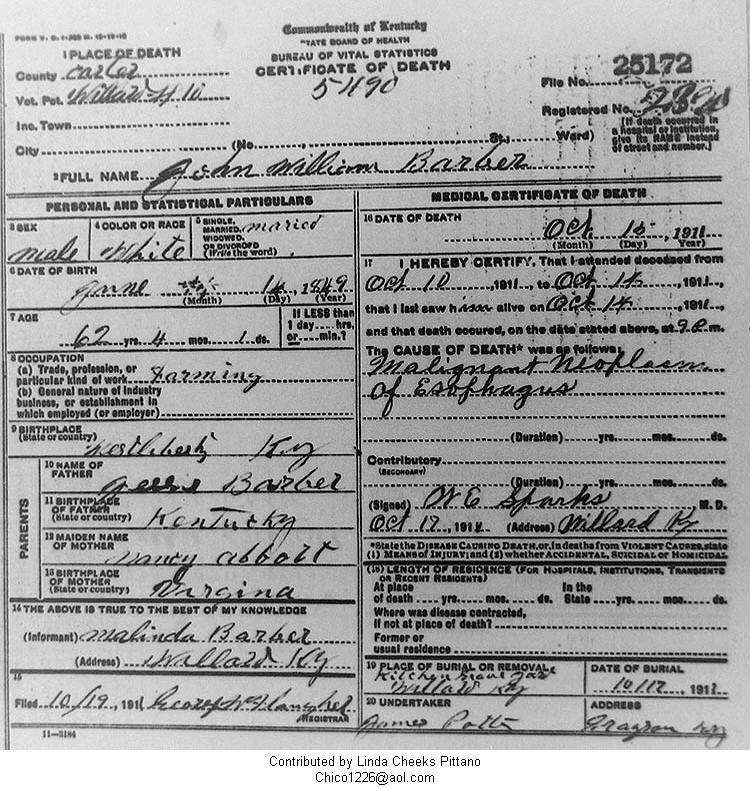 FORM V. S. 1-
Commonwealth of Kentucky
STATE BOARD OF HEALTH
BUREAU OF VITAL STATISTICS
CERTIFICATE OF DEATH
1 PLACE OF DEATH
County Carter
Vot. Pct. Willard # 10
Inc. Town
City (No. St., Ward)
File No. 25172
Registered No.
[If death occurred in a hospital or institution, give its NAME instead of street and number.]
2 FULL NAME John William Barber
PERSONAL AND STATISTICAL PARTICULARS
3 SEX male
4 COLOR OR RACE White
5 SINGLE, MARRIED, WIDOWED, OR DIVORCED (Write the word) married
6 DATE OF BIRTH
June 14, 1849
(Month) (Day) (Year)
7 AGE
62 yrs. 4 mos. 1 ds.
If LESS than 1 day.....hrs, or.....min.?
8 OCCUPATION
(a) Trade, profession, or particular kind of work farming
(b) General nature of industry business, or establishment in which employed (or employer)
9 BIRTHPLACE
(State or country)
West Liberty Ky
PARENTS
10 NAME OF FATHER Jessie Barber
11 BIRTHPLACE OF FATHER (State or country) Kentucky
12 MAIDEN NAME OF MOTHER Nancy Abbott
13 BIRTHPLACE OF MOTHER (State or country) Virgina
14 THE ABOVE IS TRUE TO THE BEST OF MY KNOWLEDGE
(Informant) Malinda Barber
(Address) Willard Ky
15
Filed 10/19, 191
REGISTRAR
11-3184
MEDICAL CERTIFICATE OF DEATH
16 DATE OF DEATH
Oct. 15, 1911
(Month) (Day) Year)
17 I HEREBY CERTIFY, That I attended deceased from
Oct 10, 1911, to Oct 14, 1911,
that I last saw him alive on Oct 14, 1911,
and that death occured, on the date stated above, at 9 P. m.
The CAUSE OF DEATH* was as follows:
Malignant Neoplasm
of Esophagus
(Duration) yrs. mos. ds.
Contributory
(SECONDARY)
(Duration) yrs. mos. ds.
(Signed) W E Sparks M. D.
Oct 17, 1911 (Address) Willard Ky
*State the DISEASE CAUSING DEATH, or, in deaths from VIOLENT CAUSES, state
(1) MEANS OF INJURY; and (2) whether ACCIDENTAL, SUICIDAL or HOMICIDAL
(18) LENGTH OF RESIDENCE (FOR HOSPITALS, INSTITUTIONS, TRANSIENTS
OR RECENT RESIDENTS)
At place of death yrs. mos. ds. In the State yrs. mos. ds.
Where was disease contracted,
if not at place of death?
Former or
usual residence
19 PLACE OF BURIAL OR REMOVAL
Kitchen Grave Yard
Willard Ky
DATE OF BURIAL
10/17, 1911
20 UNDERTAKER
James Potts
ADDRESS
Grayson Ky
Contributed by Linda Cheeks Pittano
Chico1226@aol.com